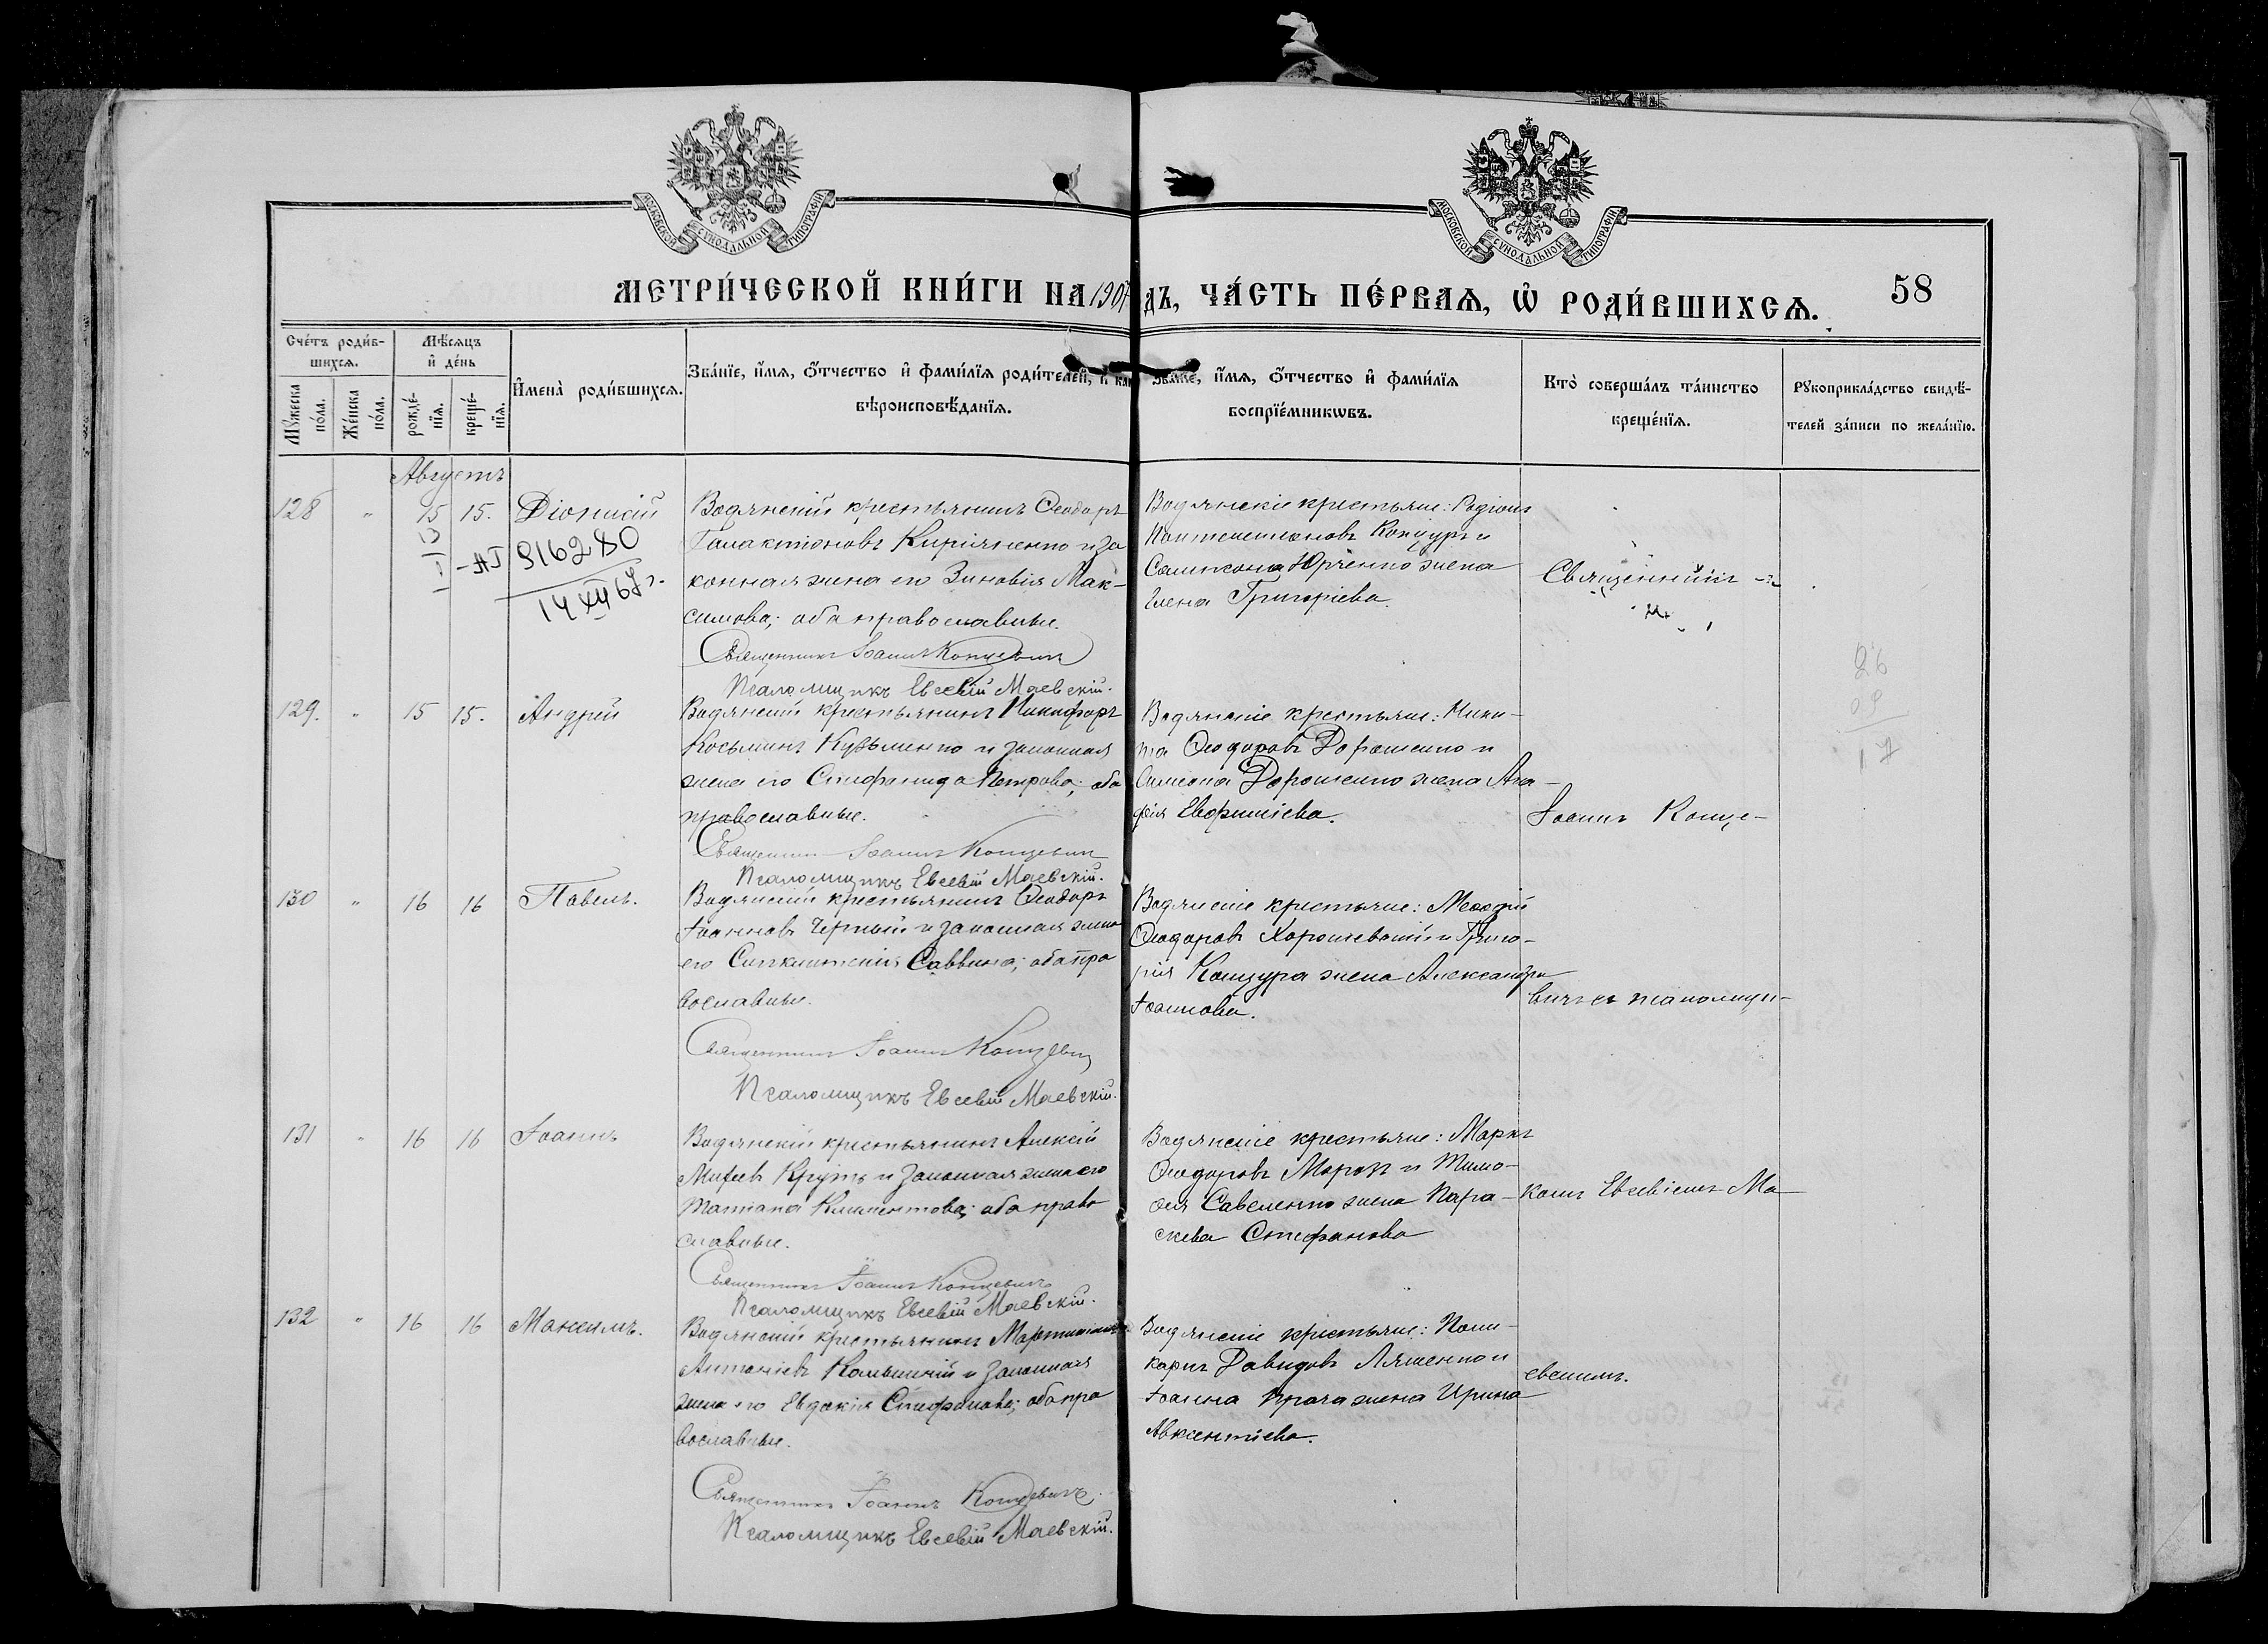 МОСКОВСКОЙ СѴНОДАЛЬНОЙ ТИПОГРАФІИ
МОСКОВСКОЙ СѴНОДАЛЬНОЙ ТИПОГРАФІИ
МЕТРИ́ЧЕСКОЙ КНИ́ГИ НА 1907 ДЪ, ЧА́СТЬ ПЕ́РВАѦ, Ѡ РОДИ́ВШИХСѦ.
58
Сче́тъ роди́в-
шихсѧ.
Мꙋ́жеска по́ла.
Же́нска по́ла.
Мѣ́сѧцъ
и҆ де́нь
рожде́-
нїѧ.
креще́-
нїѧ.
И҆мена̀ роди́вшихсѧ.
Зва́нїе, и҆́мѧ, ѻ҆́тчество и҆ фами́лїѧ роди́телей, и҆
вѣроисповѣ́данїѧ.
Зва́нїе, и҆́мѧ, ѻ҆́тчество и҆ фами́лїѧ
воспрїе́мникѡвъ.
Кто̀ соверша́лъ та́инство
креще́нїѧ.
Рꙋкоприкла́дство свидѣ́-
телей за́писи по жела́нїю.
Августъ
128 " 15 15. Діонисій
916280
14 XII 67 г.
Водянскій крестьянинъ Ѳеодоръ
Галактіоновъ Киріяченко и за
конная жена его Зиновія Мак-
симова; оба православные.
Священникъ Іоаннъ Концевичъ
Псаломщикъ Евсевій Маевскій.
Водянскіе крестьяне: Родіонъ
Пантелеимоновъ Концуръ и
Сампсона Юрченко жена
Елена Григоріева.
Священникъ
129. " 15 15. Андрей
Водянскій крестьянинъ Никифоръ
Косьминъ Кузьменко и законная
жена его Стефанида Петрова; оба
православные.
Священникъ Іоаннъ Концевичъ
Псаломщикъ Евсевій Маевскій.
Водянскіе крестьяне: Ники-
та Ѳеодоровъ Дорошенко и
Симеона Дорошенко жена Ага-
фія Евфиміева.
Іоаннъ Конце-
26
09
17
130 " 16 16 Павелъ.
Водянскій крестьянинъ Ѳеодоръ
Іоанновъ Черный и законная жена
его Синклитикія Саввина; оба пра
вославные.
Священникъ Іоаннъ Концевичъ
Псаломщикъ Евсевій Маевскій.
Водянскіе крестьяне: Меѳодій
Ѳеодоровъ и Григо-
рія Концура жена Александра
Іоаннова.
вичъ съ псаломщи-
131 " 16 16 Іоаннъ
Водянскій крестьянинъ Алексій
Круть и законная жена его
Татіана Климентова; оба право
славные.
Священникъ Іоаннъ Концевичъ
Псаломщикъ Евсевій Маевскій.
Водянскіе крестьяне: Маркъ
Ѳеодоровъ и Тимо-
ѳея Савеленко жена Пара-
скева Стефанова
комъ Евсевіемъ Ма-
132 " 16 16 Максимъ.
Водянскій крестьянинъ
Антоніевъ и законная
жена его Евдокія Стефанова; оба пра
вославные.
Священникъ Іоаннъ Концевичъ.
Псаломщикъ Евсевій Маевскій.
Водянскіе крестьяне: Поли-
карпъ Давидовъ Ляшенко и
Іоанна жена Ирина
Авксентіева.
евскимъ.